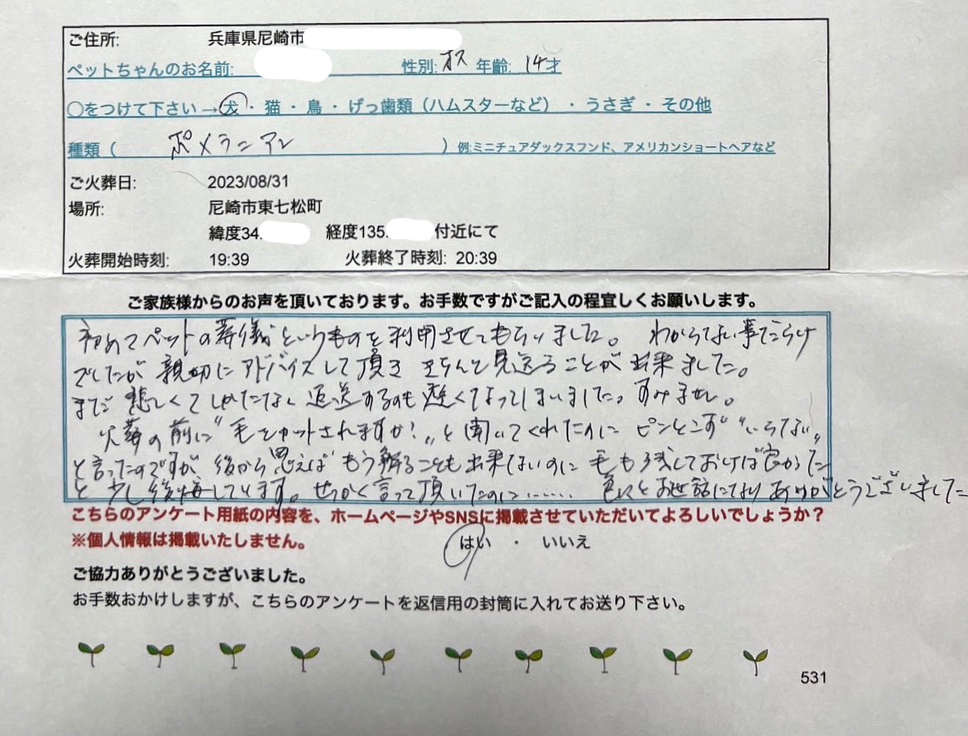 ご住所: 兵庫県尼崎市
ペットちゃんのお名前: 性別: オス 年齢: 14才
○をつけて下さい→犬・猫・鳥・げっ歯類（ハムスターなど）・うさぎ・その他
種類（ ポメラニアン ）例:ミニチュアダックスフンド、アメリカンショートヘアなど
ご火葬日: 2023/08/31
場所: 尼崎市東七松町
緯度34. 経度135. 付近にて
火葬開始時刻: 19:39 火葬終了時刻: 20:39
ご家族様からのお声を頂いております。お手数ですがご記入の程宜しくお願いします。
初めてペットの葬儀というものを利用させてもらいました。 わからない事だらけ
でしたが 親切にアドバイスして頂き きちんと見送ることが出来ました。
まだ 悲しくてしかたない 返送するのも遅くなってしまいました。すみません。
火葬の前に"毛をカットされますか?"と聞いてくれたのに ピンとこず"いらない"
と言ったのですが 後から思えば もう触ることも出来ないのに 毛も残しておけば良かった
と少し後悔しています。せっかく言って頂いたのに…… 色々とお世話になりありがとうございました
こちらのアンケート用紙の内容を、ホームページやSNSに掲載させていただいてよろしいでしょうか？
※個人情報は掲載いたしません。 はい ・ いいえ
ご協力ありがとうございました。
お手数おかけしますが、こちらのアンケートを返信用の封筒に入れてお送り下さい。
531